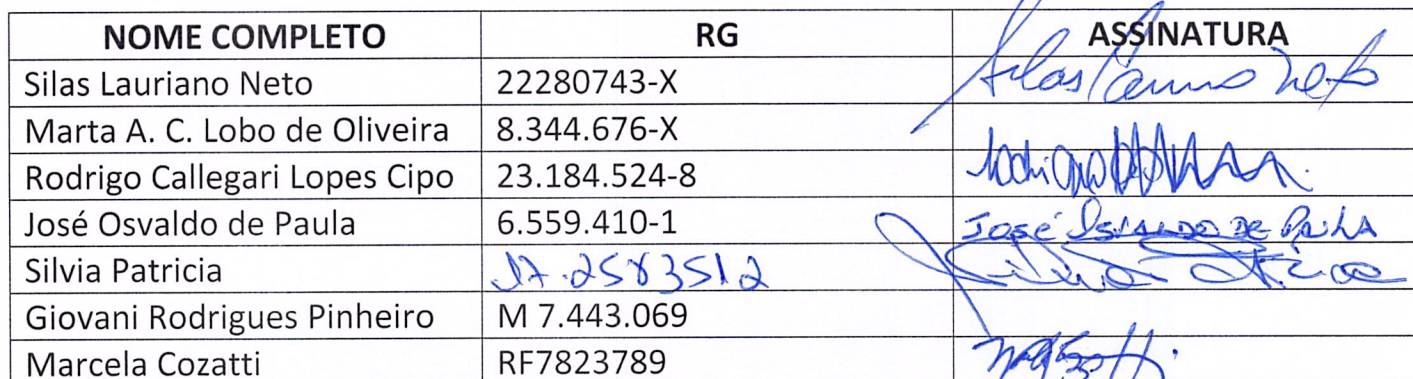 NOME COMPLETO RG ASSINATURA
Silas Lauriano Neto 22280743-X Silas Neto
Marta A. C. Lobo de Oliveira 8.344.676-X
Rodrigo Callegari Lopes Cipo 23.184.524-8
José Osvaldo de Paula 6.559.410-1 JOSÉ OSVALDO DE PAULA
Silvia Patricia
Giovani Rodrigues Pinheiro M 7.443.069
Marcela Cozatti RF7823789